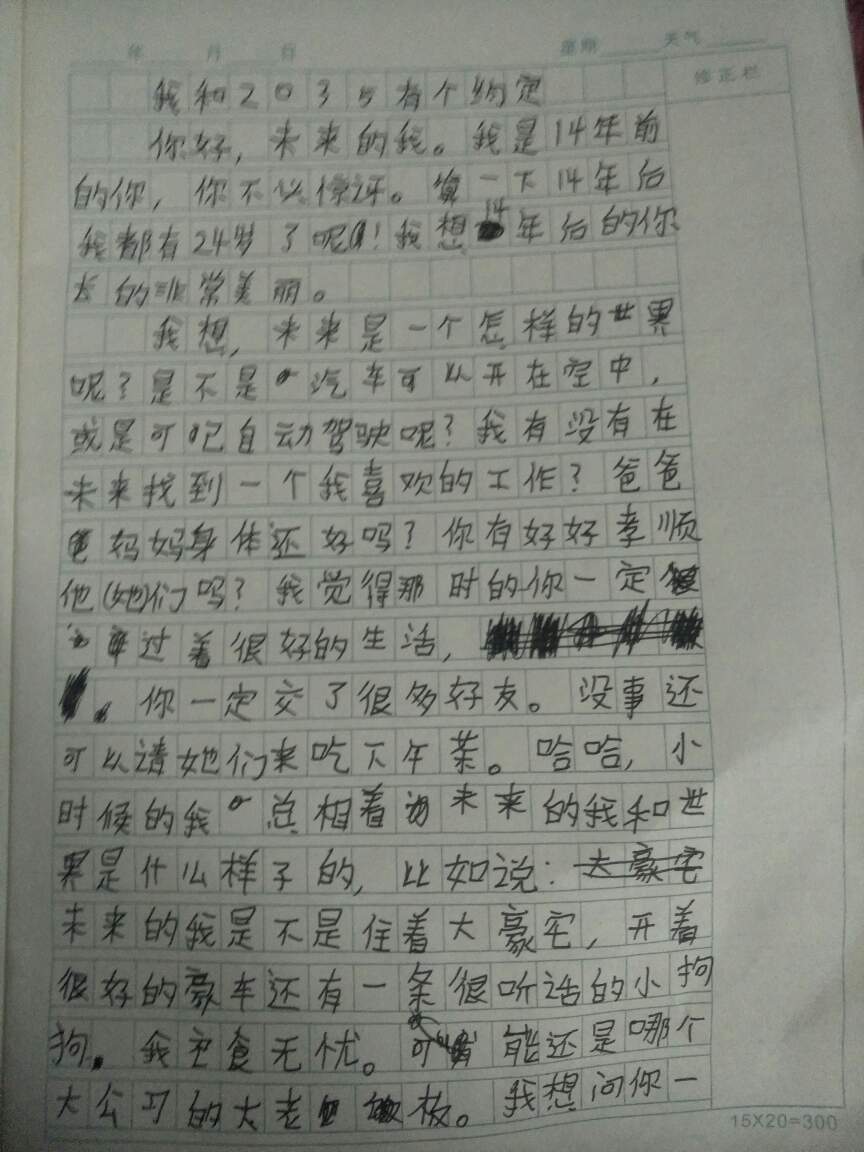 年 月 日 星期 天气
修正栏
我和2035有个约定
你好，未来的我。我是14年前
的你，你不必惊讶。算一下14年后
我都有24岁了呢！我想14年后的你
长的非常美丽。
我想，未来是一个怎样的世界
呢？是不是汽车可以开在空中，
或是可以自动驾驶呢？我有没有在
未来找到一个我喜欢的工作？爸爸
妈妈身体还好吗？你有好好孝顺
他(她)们吗？我觉得那时的你一定
过着很好的生活，
。你一定交了很多好友。没事还
可以请她们来吃下午茶。哈哈，小
时候的我总相着未来的我和世
界是什么样子的，比如说：大豪宅
未来的我是不是住着大豪宅，开着
很好的豪车还有一条很听话的小狗
狗。我衣食无忧。可能还是哪个
大公司的大老板。我想问你一
15X20=300